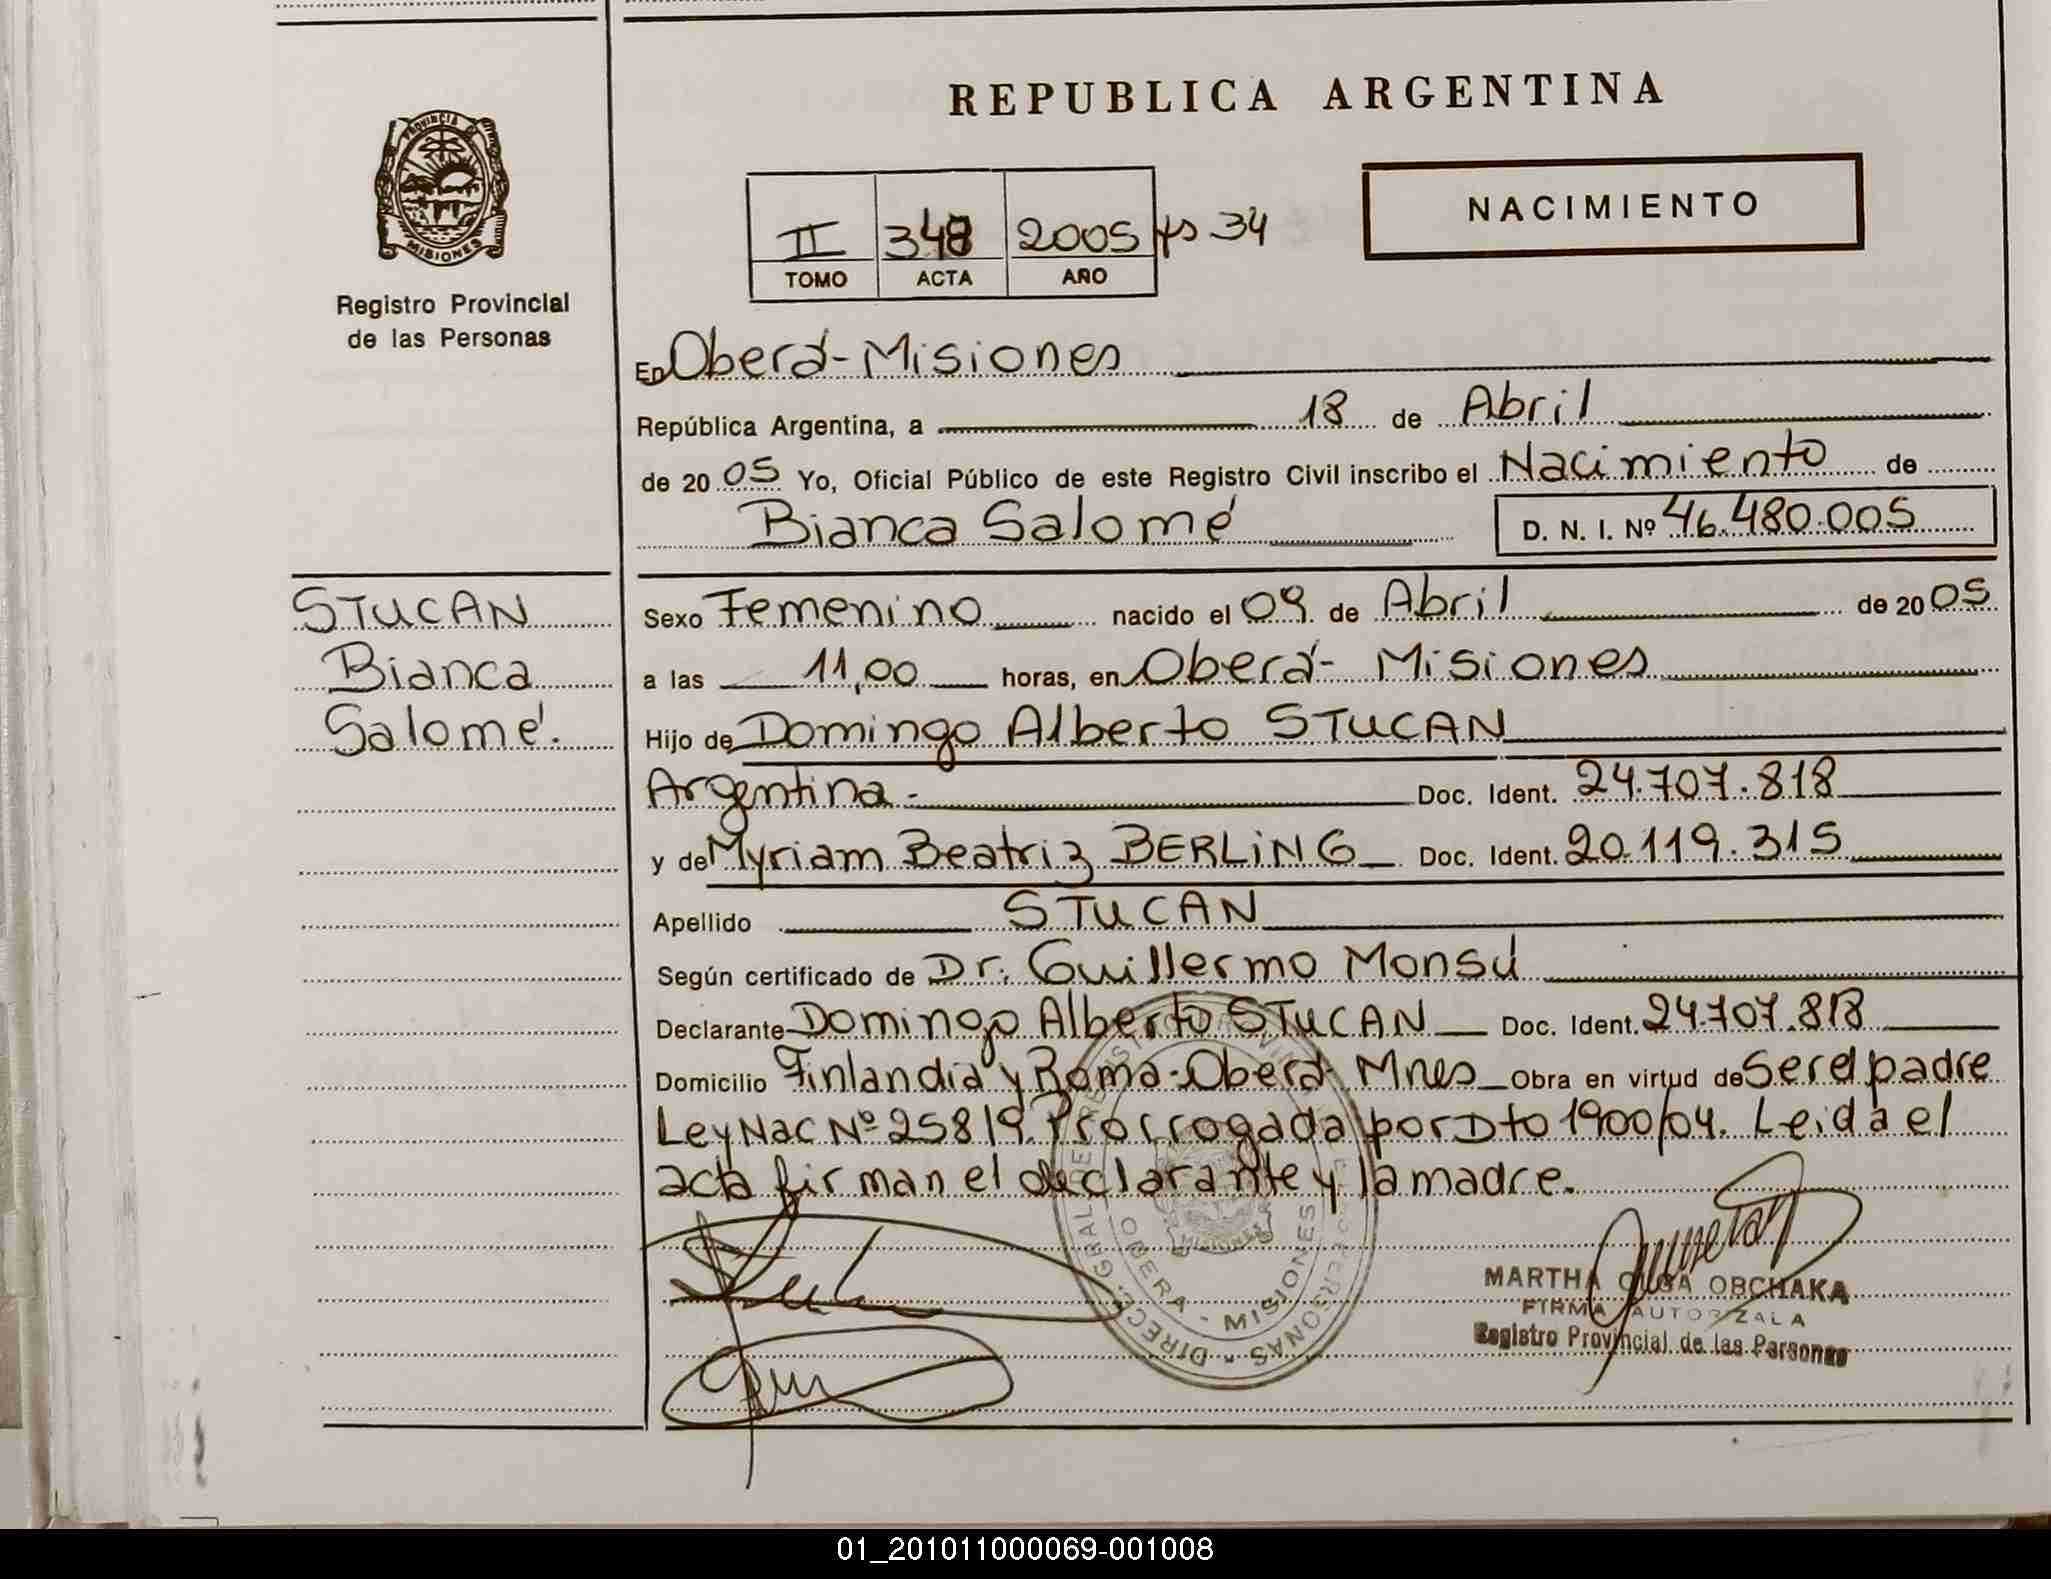 REPUBLICA ARGENTINA
PROVINCIA DE
MISIONES
Registro Provincial
de las Personas
II 348 2005 fs 34
TOMO ACTA AÑO
NACIMIENTO
En Oberá - Misiones
República Argentina, a 18 de Abril
de 2005 Yo, Oficial Público de este Registro Civil inscribo el Nacimiento de
Bianca Salomé D. N. I. Nº 46.480.005
STUCAN
Bianca
Salomé.
Sexo Femenino nacido el 09 de Abril de 2005
a las 11,00 horas, en Oberá - Misiones
Hijo de Domingo Alberto STUCAN
Argentina - Doc. Ident. 24.707.818
y de Myriam Beatriz BERLING Doc. Ident. 20.119.315
Apellido STUCAN
Según certificado de Dr. Guillermo Monsú
Declarante Domingo Alberto STUCAN Doc. Ident. 24.707.818
Domicilio Finlandia y Roma - Oberá - Mnes Obra en virtud de Ser el padre
Ley Nac Nº 25819. Prorrogada por Dto 1900/04. Leida el
acta firman el declarante y la madre.
OBERA - MISIONES
MISIONES
MARTHA OLGA OBCHAKA
FIRMA AUTORIZALA
Registro Provincial de las Personas
01_201011000069-001008